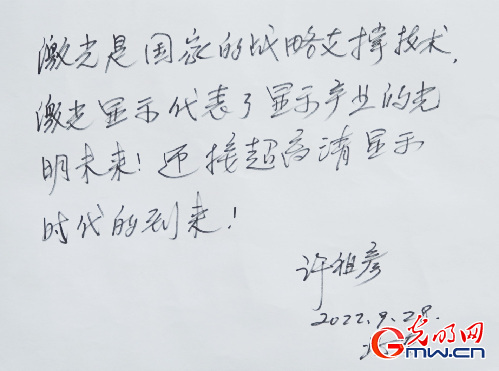 激光是国家的战略支撑技术,
激光显示代表了显示产业的光
明未来!迎接超高清显示
时代的到来!
许祖彦
2022.9.28.
光明网
GMW.CN